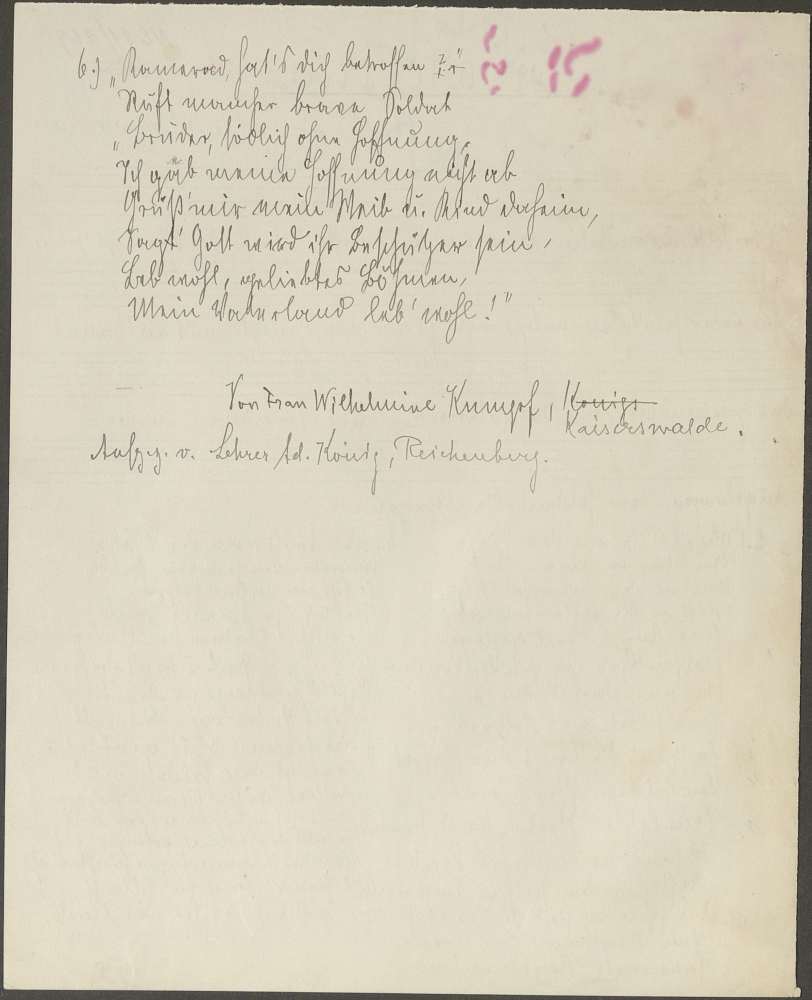 6.) „Kamerad, hat's dich betroffen ?"
Ruft mancher brave Soldat
„Bruder, tödlich ohne Hoffnung,
Ich gäb meine Hoffnung nicht ab
Grüß' mir mein Weib u. Kind daheim,
Sagt' Gott wird ihr Beschützer sein,
Leb wohl, geliebtes Böhmen,
Mein Vaterland leb' wohl!"
Von Frau Wilhelmine Kumpf, Königs
Kaiserswalde.
Aufgez. v. Lehrer Ad. König, Reichenberg.